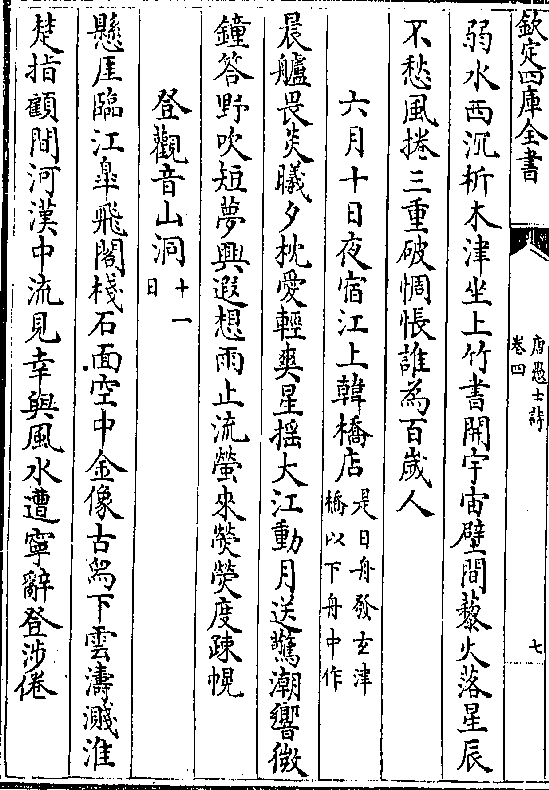 欽定四庫全書
唐愚士詩
卷四
七
弱水西沉析木津坐上竹書開宇宙壁間藜火落星辰
不愁風捲三重破惆悵誰為百歲人
六月十日夜宿江上韓橋店是日舟發玄津
橋以下舟中作
晨艫畏炎曦夕枕愛輕爽星揺大江動月送驚潮響微
鐘答野吹短夢興遐想雨止流螢來熒熒度疎幌
登觀音山洞十一
日
懸厓臨江臯飛閣棧石面空中金像古舄下雲濤濺淮
楚指顧間河漢中流見幸與風水遭寧辭登涉倦